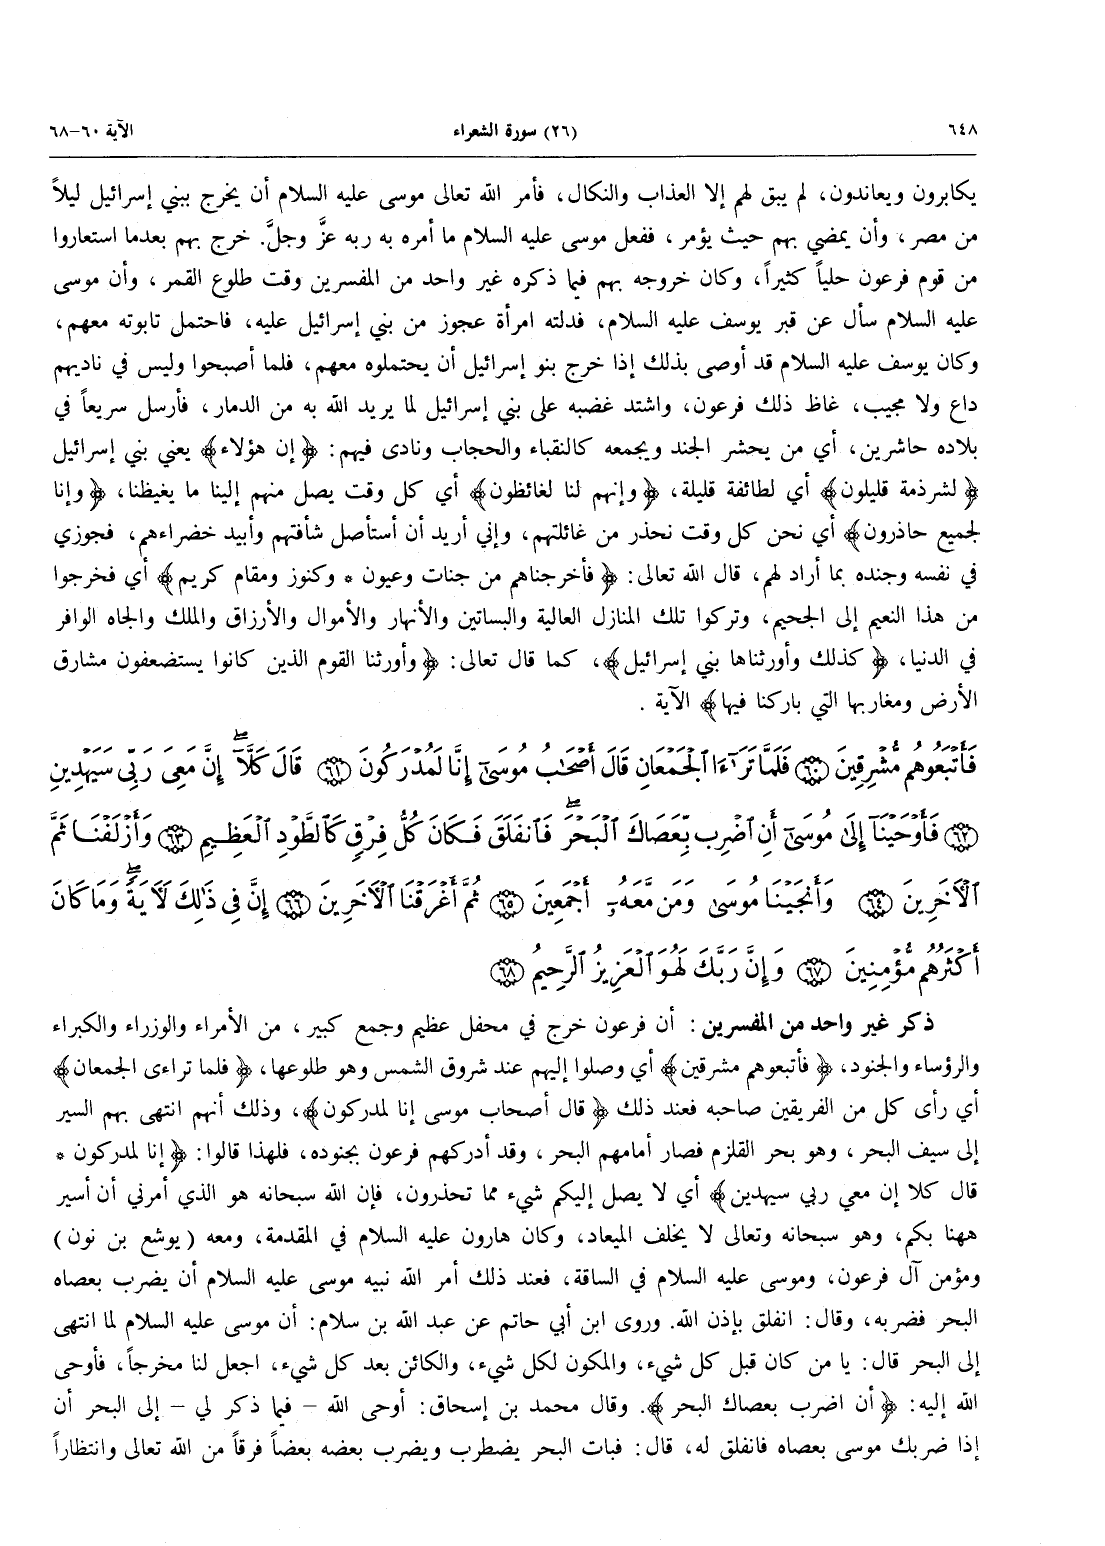 ٦٤٨ (٢٦) سورة الشعراء الآية ٦٠-٦٨
يكابرون ويعاندون، لم يبق لهم إلا العذاب والنكال، فأمر الله تعالى موسى عليه السلام أن يخرج ببني إسرائيل ليلاً
من مصر، وأن يمضي بهم حيث يؤمر، ففعل موسى عليه السلام ما أمره به ربه عزَّ وجلَّ. خرج بهم بعدما استعاروا
من قوم فرعون حلياً كثيراً، وكان خروجه بهم فيما ذكره غير واحد من المفسرين وقت طلوع القمر، وأن موسى
عليه السلام سأل عن قبر يوسف عليه السلام، فدلته امرأة عجوز من بني إسرائيل عليه، فاحتمل تابوته معهم،
وكان يوسف عليه السلام قد أوصى بذلك إذا خرج بنو إسرائيل أن يحتملوه معهم، فلما أصبحوا وليس في ناديهم
داع ولا مجيب، غاظ ذلك فرعون، واشتد غضبه على بني إسرائيل لما يريد الله به من الدمار، فأرسل سريعاً في
بلاده حاشرين، أي من يحشر الجند ويجمعه كالنقباء والحجاب ونادى فيهم: ﴿إن هؤلاء﴾ يعني بني إسرائيل
﴿لشرذمة قليلون﴾ أي لطائفة قليلة، ﴿وإنهم لنا لغائظون﴾ أي كل وقت يصل منهم إلينا ما يغيظنا، ﴿وإنا
لجميع حاذرون﴾ أي نحن كل وقت نحذر من غائلتهم، وإني أريد أن أستأصل شأفتهم وأبيد خضراءهم، فجوزي
في نفسه وجنده بما أراد لهم، قال الله تعالى: ﴿فأخرجناهم من جنات وعيون * وكنوز ومقام كريم﴾ أي فخرجوا
من هذا النعيم إلى الجحيم، وتركوا تلك المنازل العالية والبساتين والأنهار والأموال والأرزاق والملك والجاه الوافر
في الدنيا، ﴿كذلك وأورثناها بني إسرائيل﴾، كما قال تعالى: ﴿وأورثنا القوم الذين كانوا يستضعفون مشارق
الأرض ومغاربها التي باركنا فيها﴾ الآية .
فَأَتْبَعُوهُم مُّشْرِقِينَ ﴿٦٠﴾ فَلَمَّا تَرَٰٓءَا ٱلْجَمْعَانِ قَالَ أَصْحَٰبُ مُوسَىٰٓ إِنَّا لَمُدْرَكُونَ ﴿٦١﴾ قَالَ كَلَّآ ۖ إِنَّ مَعِىَ رَبِّى سَيَهْدِينِ
﴿٦٢﴾ فَأَوْحَيْنَآ إِلَىٰ مُوسَىٰٓ أَنِ ٱضْرِب بِّعَصَاكَ ٱلْبَحْرَ ۖ فَٱنفَلَقَ فَكَانَ كُلُّ فِرْقٍ كَٱلطَّوْدِ ٱلْعَظِيمِ ﴿٦٣﴾ وَأَزْلَفْنَا ثَمَّ
ٱلْءَاخَرِينَ ﴿٦٤﴾ وَأَنجَيْنَا مُوسَىٰ وَمَن مَّعَهُۥٓ أَجْمَعِينَ ﴿٦٥﴾ ثُمَّ أَغْرَقْنَا ٱلْءَاخَرِينَ ﴿٦٦﴾ إِنَّ فِى ذَٰلِكَ لَءَايَةً ۖ وَمَا كَانَ
أَكْثَرُهُم مُّؤْمِنِينَ ﴿٦٧﴾ وَإِنَّ رَبَّكَ لَهُوَ ٱلْعَزِيزُ ٱلرَّحِيمُ ﴿٦٨﴾
ذكر غير واحد من المفسرين: أن فرعون خرج في محفل عظيم وجمع كبير، من الأمراء والوزراء والكبراء
والرؤساء والجنود، ﴿فأتبعوهم مشرقين﴾ أي وصلوا إليهم عند شروق الشمس وهو طلوعها، ﴿فلما تراءى الجمعان﴾
أي رأى كل من الفريقين صاحبه فعند ذلك ﴿قال أصحاب موسى إنا لمدركون﴾، وذلك أنهم انتهى بهم السير
إلى سيف البحر، وهو بحر القلزم فصار أمامهم البحر، وقد أدركهم فرعون بجنوده، فلهذا قالوا: ﴿إنا لمدركون *
قال كلا إن معي ربي سيهدين﴾ أي لا يصل إليكم شيء مما تحذرون، فإن الله سبحانه هو الذي أمرني أن أسير
ههنا بكم، وهو سبحانه وتعالى لا يخلف الميعاد، وكان هارون عليه السلام في المقدمة، ومعه (يوشع بن نون)
ومؤمن آل فرعون، وموسى عليه السلام في الساقة، فعند ذلك أمر الله نبيه موسى عليه السلام أن يضرب بعصاه
البحر فضربه، وقال: انفلق بإذن الله. وروى ابن أبي حاتم عن عبد الله بن سلام: أن موسى عليه السلام لما انتهى
إلى البحر قال: يا من كان قبل كل شيء، والمكون لكل شيء، والكائن بعد كل شيء، اجعل لنا مخرجاً، فأوحى
الله إليه: ﴿أن اضرب بعصاك البحر﴾. وقال محمد بن إسحاق: أوحى الله - فيما ذكر لي - إلى البحر أن
إذا ضربك موسى بعصاه فانفلق له، قال: فبات البحر يضطرب ويضرب بعضه بعضاً فرقاً من الله تعالى وانتظاراً